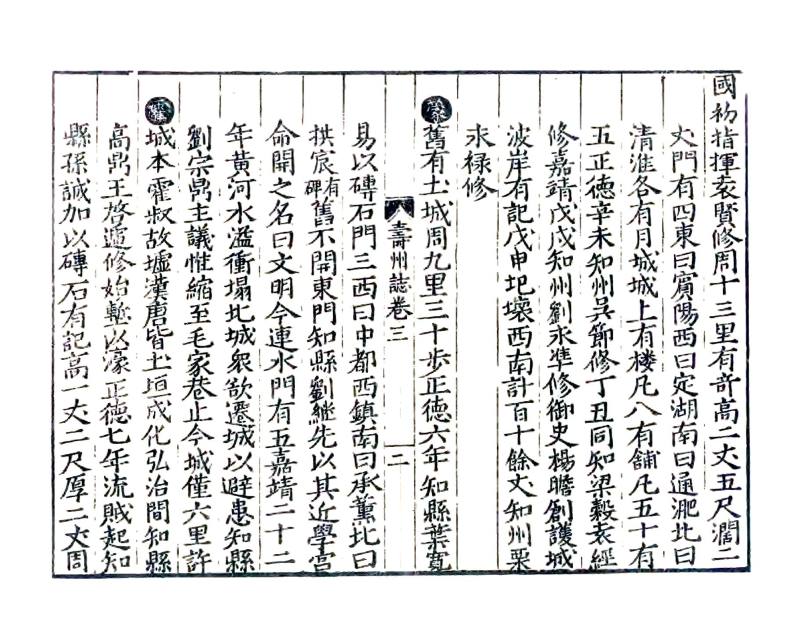 國初指揮袁賢修周十三里有竒高二丈五尺濶二
丈門有四東曰賓陽西曰定湖南曰通淝北曰
清淮各有月城城上有楼凡八有舖凡五十有
五正德辛未知州吳節修丁丑同知梁穀袁經
修嘉靖戊戌知州劉永準修御史楊瞻創護城
波岸有記戊申圮壞西南計百十餘丈知州栗
永禄修
壽州誌卷三
二
蒙舊有土城周九里三十歩正德六年知縣葉寛
易以磚石門三西曰中都西鎮南曰承薫北曰
拱宸有碑舊不開東門知縣劉繼先以其近學宫
命開之名曰文明今連水門有五嘉靖二十二
年黄河水溢衝塌北城衆欲遷城以避患知縣
劉宗鼎主議惟縮至毛家巷止今城僅六里許
城本霍叔故墟漢唐皆土垣成化弘治間知縣
高鼎王啓遞修始塹以濠正德七年流賊起知
縣孫誠加以磚石有記高一丈二尺厚二丈周